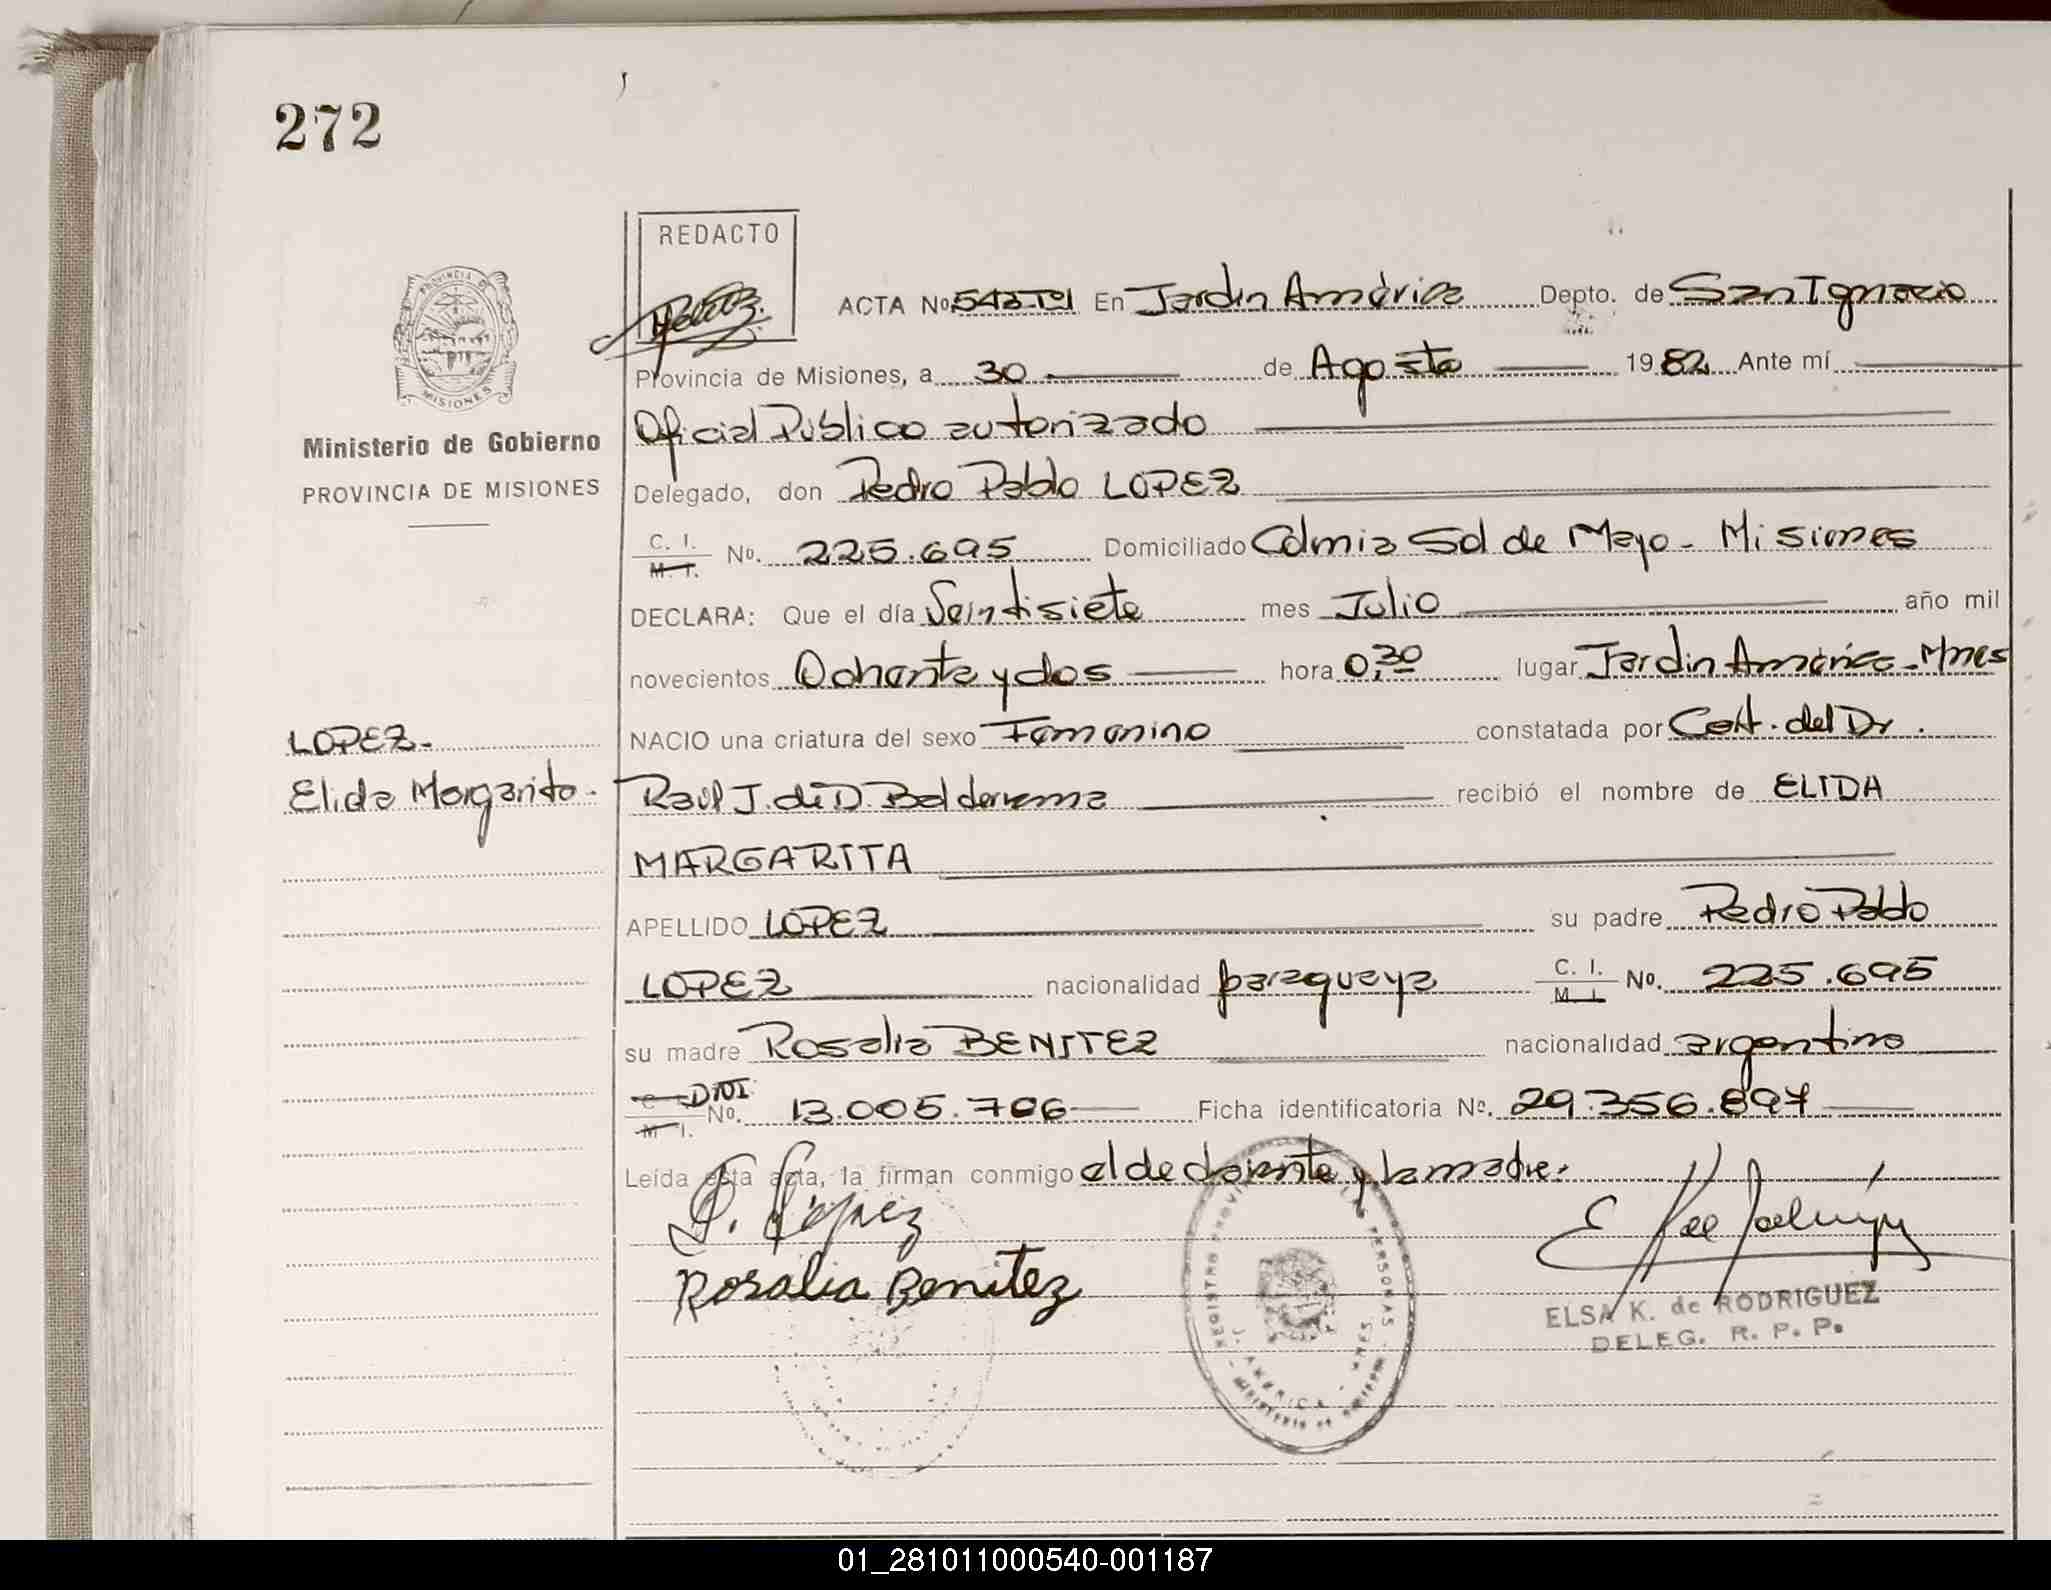 272
REDACTO
ACTA No. 543-TºI En Jardin América Depto. de San Ignacio
Provincia de Misiones, a 30 de Agosto 1982 Ante mí
Oficial Público autorizado
Delegado, don Pedro Pablo LOPEZ
C. I. M. I. No. 225.695 Domiciliado Colonia Sol de Mayo - Misiones
DECLARA: Que el día Veintisiete mes Julio año mil
novecientos Ochenta y dos hora 0,30 lugar Jardin América - Mnes
NACIO una criatura del sexo Femenino constatada por Cert. del Dr.
Raúl J. de D. Balderrama recibió el nombre de ELIDA
MARGARITA
APELLIDO LOPEZ su padre Pedro Pablo
LOPEZ nacionalidad paraguaya C. I. M. I. No. 225.695
su madre Rosalia BENITEZ nacionalidad argentina
DNI M. I. No. 13.005.706 Ficha identificatoria Nº. 29.356.897
Leída esta acta, la firman conmigo el declarante y la madre.
P. López
Rosalia Benitez
ELSA K. de RODRIGUEZ
DELEG. R. P. P.
REGISTRO PERSONAS
AMERICA - MNES
MINISTERIO DE GOBIERNO
PROVINCIA DE
MISIONES
Ministerio de Gobierno
PROVINCIA DE MISIONES
LOPEZ.-
Elida Margarita.-
01_281011000540-001187